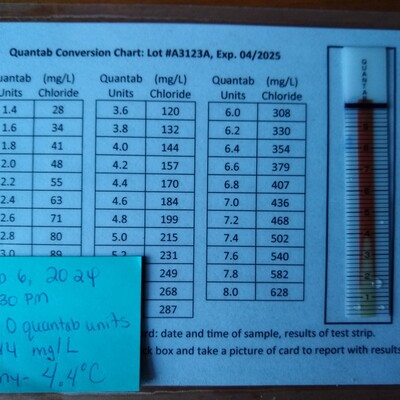 Quantab Conversion Chart: Lot #A3123A, Exp. 04/2025
uantab (mg/L) Quantab (mg/L) Quantab (mg/L)
Units Chloride Units Chloride Units Chloride
1.4 28 3.6 120 6.0 308
1.6 34 3.8 132 6.2 330
1.8 41 4.0 144 6.4 354
2.0 48 4.2 157 6.6 379
2.2 55 4.4 170 6.8 407
2.4 63 4.6 184 7.0 436
2.6 71 4.8 199 7.2 468
2.8 80 5.0 215 7.4 502
3.0 89 5.2 231 7.6 540
249 7.8 582
268 8.0 628
287
rd: date and time of sample, results of test strip.
ck box and take a picture of card to report with results
6, 2024
30 pm
0 quantab units
44 mg/L
4.4°C
QUANTAB
9
8
7
6
5
4
3
2
1